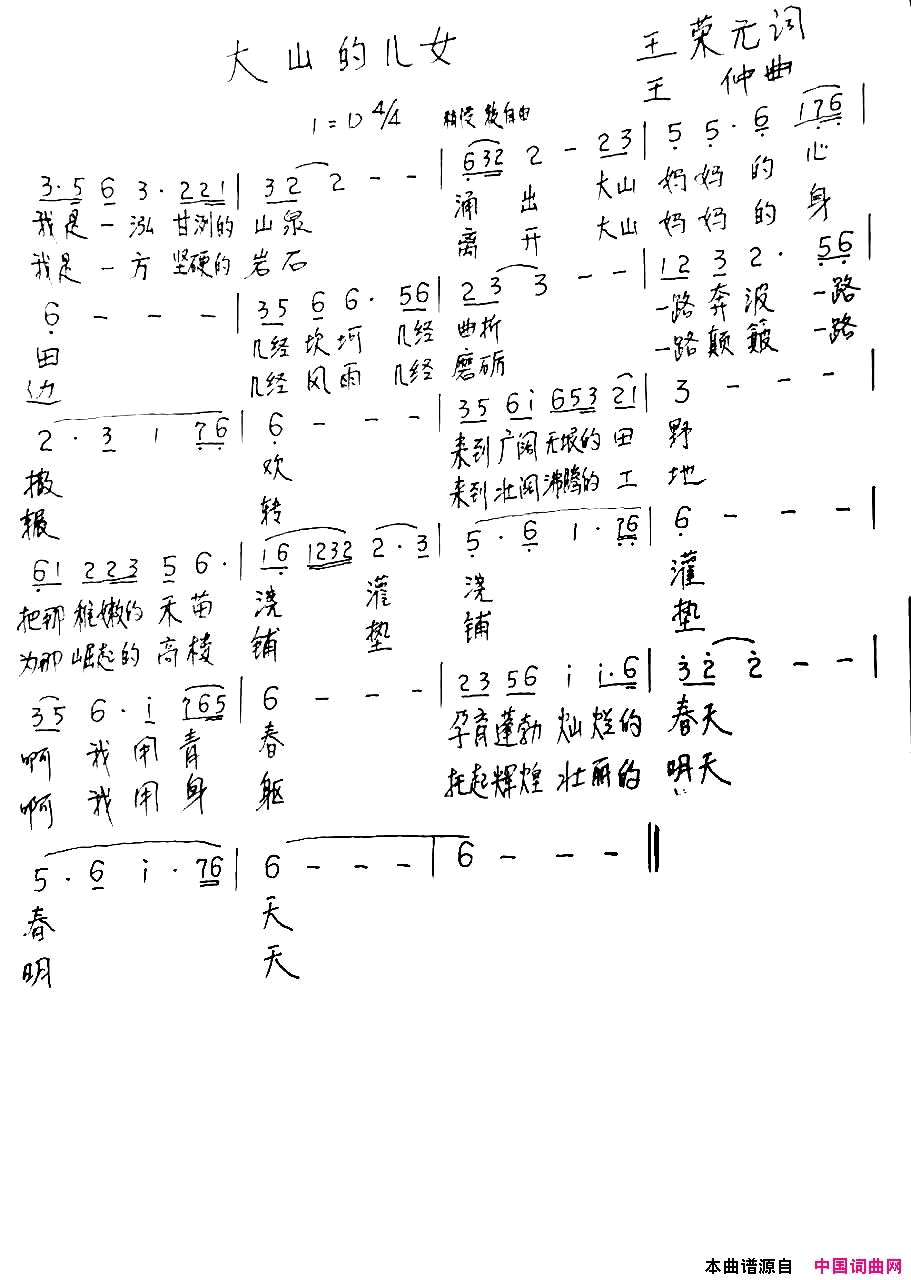 大山的儿女
王荣元词
王 仲曲
1=D 4/4 稍慢 较自由
3·5 6 3·221 | 32 2 - - | 632 2 - 23 | 5 5· 6 176 |
我是一泓甘洌的山泉 涌出 大山妈妈的心
我是一方坚硬的岩石 离开 大山妈妈的身
6 - - - | 35 6 6· 56 | 23 3 - - | 12 3 2· 56 |
田 几经坎坷 几经曲折 一路奔波 一路
边 几经风雨 几经磨砺 一路颠簸 一路
2·3 1 76 | 6 - - - | 35 6i 653 21 | 3 - - - |
撒 欢 来到广阔无垠的田野
辗 转 来到壮阔沸腾的工地
61 223 5 6· | 16 1232 2·3 | 5·6 1·76 | 6 - - - |
把那稚嫩的禾苗 浇 灌 浇 灌
为那崛起的高楼 铺 垫 铺 垫
35 6·i 765 | 6 - - - | 23 56 i i·6 | 32 2 - - |
啊 我用青春 孕育蓬勃灿烂的春天
啊 我用身躯 托起辉煌壮丽的明天
5·6 i·76 | 6 - - - | 6 - - - ‖
春 天
明 天
本曲谱源自 中国词曲网